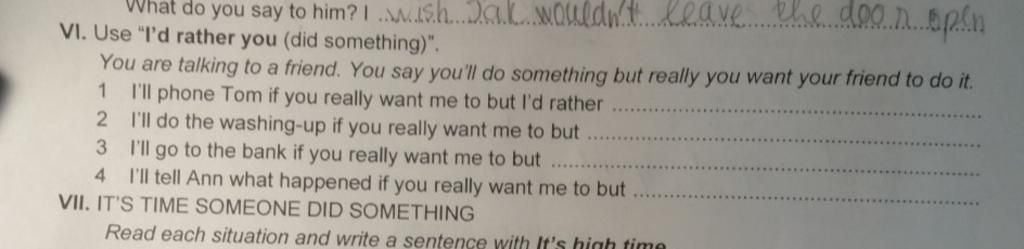 What do you say to him? I ..wish Jak wouldn't leave the door open
VI. Use "I'd rather you (did something)".
You are talking to a friend. You say you'll do something but really you want your friend to do it.
1 I'll phone Tom if you really want me to but I'd rather ......................
2 I'll do the washing-up if you really want me to but ......................
3 I'll go to the bank if you really want me to but ......................
4 I'll tell Ann what happened if you really want me to but ......................
VII. IT'S TIME SOMEONE DID SOMETHING
Read each situation and write a sentence with It's high time